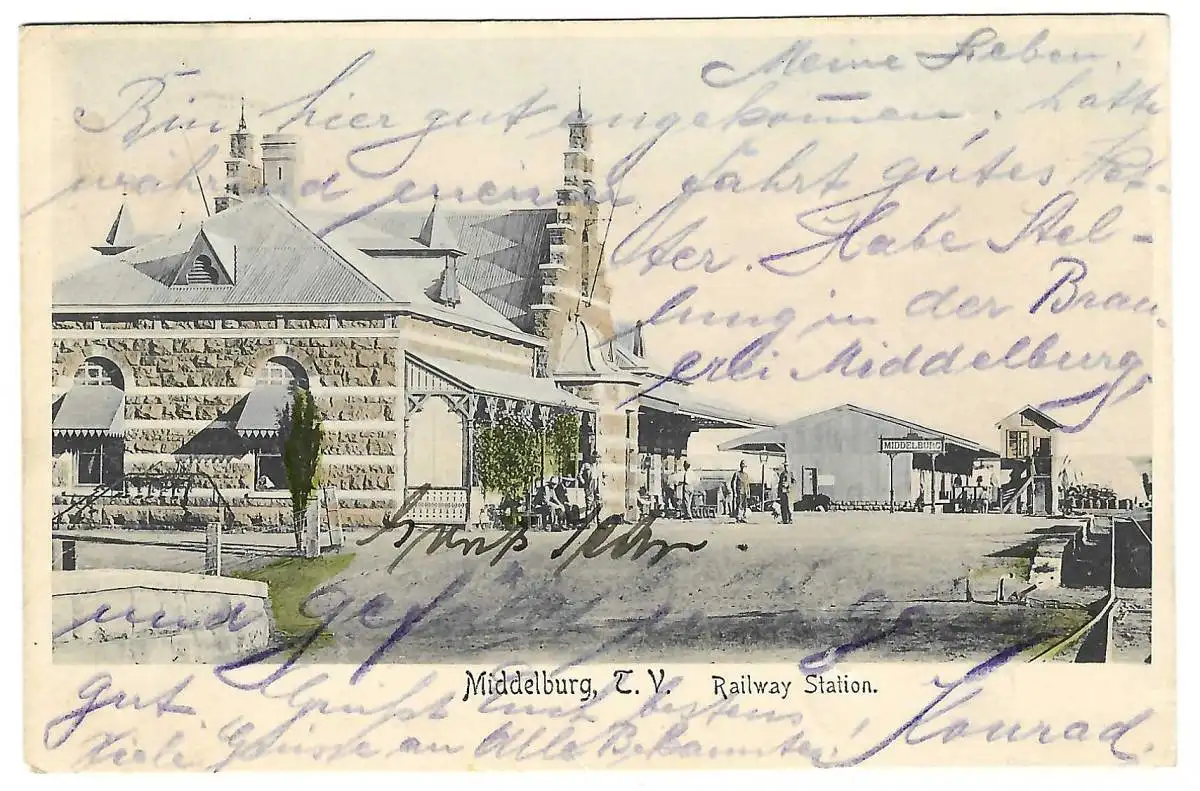 Meine Lieben!
Bin hier gut angekommen. hatte
während meiner Fahrt gutes Wet-
ter. Habe Stel-
lung in der Brau-
erei Middelburg
MIDDELBURG
und gefällt
gut. Grüßt Euch bestens
Konrad.
Viele Grüsse an Alle Bekannten!
Middelburg, T. V. Railway Station.